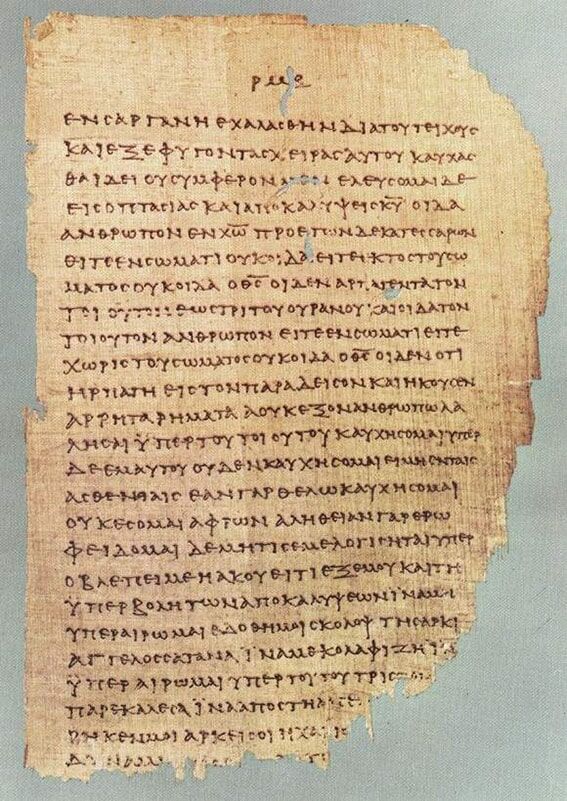 ΕΝ ΣΑΡΓΑΝΗ ΕΧΑΛΑΣΘΗΝ ΔΙΑ ΤΟΥ ΤΕΙΧΟΥΣ
ΚΑΙ ΕΞΕΦΥΓΟΝ ΤΑΣ ΧΕΙΡΑΣ ΑΥΤΟΥ ΚΑΥΧΑΣ
ΘΑΙ ΔΕΙ ΟΥ ΣΥΜΦΕΡΟΝ ΕΛΕΥΣΟΜΑΙ ΔΕ
ΕΙΣ ΟΠΤΑΣΙΑΣ ΚΑΙ ΑΠΟΚΑΛΥΨΕΙΣ Κ̅Υ̅ ΟΙΔΑ
ΑΝΘΡΩΠΟΝ ΕΝ Χ̅Ω̅ ΠΡΟ ΕΤΩΝ ΔΕΚΑΤΕΣΣΑΡΩΝ
ΕΙΤΕ ΕΝ ΣΩΜΑΤΙ ΟΥΚ ΟΙΔΑ ΕΙΤΕ ΕΚΤΟΣ ΤΟΥ ΣΩ
ΜΑΤΟΣ ΟΥΚ ΟΙΔΑ Ο Θ̅Σ̅ ΟΙΔΕΝ ΑΡΠΑΓΕΝΤΑ ΤΟΝ
ΤΟΙΟΥΤΟΝ ΕΩΣ ΤΡΙΤΟΥ ΟΥΡΑΝΟΥ ΚΑΙ ΟΙΔΑ ΤΟΝ
ΤΟΙΟΥΤΟΝ ΑΝΘΡΩΠΟΝ ΕΙΤΕ ΕΝ ΣΩΜΑΤΙ ΕΙΤΕ
ΧΩΡΙΣ ΤΟΥ ΣΩΜΑΤΟΣ ΟΥΚ ΟΙΔΑ Ο Θ̅Σ̅ ΟΙΔΕΝ ΟΤΙ
ΗΡΠΑΓΗ ΕΙΣ ΤΟΝ ΠΑΡΑΔΕΙΣΟΝ ΚΑΙ ΗΚΟΥΣΕΝ
ΑΡΡΗΤΑ ΡΗΜΑΤΑ Α ΟΥΚ ΕΞΟΝ ΑΝΘΡΩΠΩ ΛΑ
ΛΗΣΑΙ ΫΠΕΡ ΤΟΥ ΤΟΙΟΥΤΟΥ ΚΑΥΧΗΣΟΜΑΙ ΫΠΕΡ
ΔΕ ΕΜΑΥΤΟΥ ΟΥΔΕΝ ΚΑΥΧΗΣΟΜΑΙ ΕΙ ΜΗ ΕΝ ΤΑΙΣ
ΑΣΘΕΝΕΙΑΙΣ ΕΑΝ ΓΑΡ ΘΕΛΩ ΚΑΥΧΗΣΟΜΑΙ
ΟΥΚ ΕΣΟΜΑΙ ΑΦΡΩΝ ΑΛΗΘΕΙΑΝ ΓΑΡ ΕΡΩ
ΦΕΙΔΟΜΑΙ ΔΕ ΜΗ ΤΙΣ ΕΜΕ ΛΟΓΙΣΗΤΑΙ ΥΠΕΡ
Ο ΒΛΕΠΕΙ ΜΕ Η ΑΚΟΥΕΙ ΤΙ ΕΞ ΕΜΟΥ ΚΑΙ ΤΗ
ΫΠΕΡΒΟΛΗ ΤΩΝ ΑΠΟΚΑΛΥΨΕΩΝ ΪΝΑ ΜΗ
ΥΠΕΡΑΙΡΩΜΑΙ ΕΔΟΘΗ ΜΟΙ ΣΚΟΛΟΨ ΤΗ ΣΑΡΚΙ
ΑΓΓΕΛΟΣ ΣΑΤΑΝΑ ΪΝΑ ΜΕ ΚΟΛΑΦΙΖΗ ΪΝΑ
ΫΠΕΡΑΙΡΩΜΑΙ ΥΠΕΡ ΤΟΥΤΟΥ ΤΡΙΣ
ΠΑΡΕΚΑΛΕΣΑ ΪΝΑ ΑΠΟΣΤΗ
ΡΗΚΕΝ ΜΟΙ ΑΡΚΕΙ ΣΟΙ Η ΧΑΡΙΣ